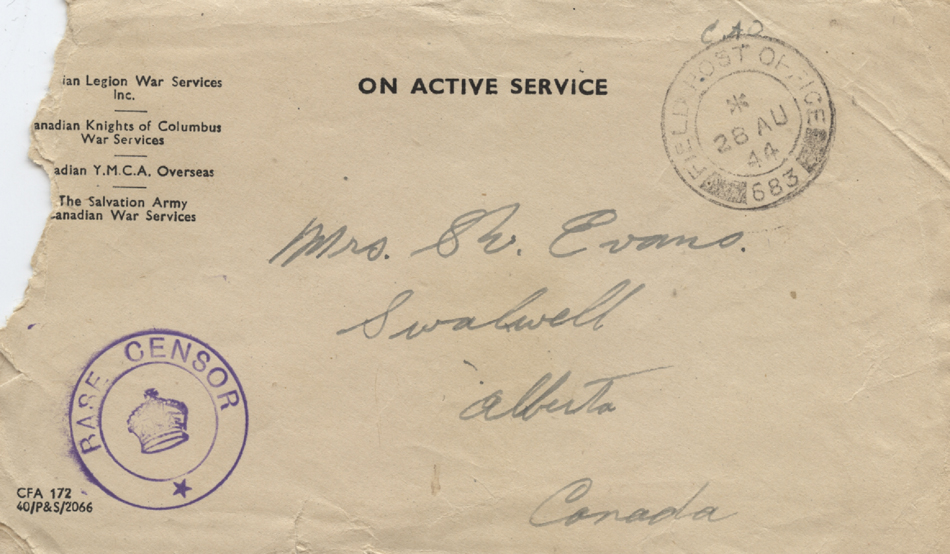 C.A.O.
FIELD POST OFFICE
28 AU
44
683
ON ACTIVE SERVICE
ian Legion War Services
Inc.
anadian Knights of Columbus
War Services
adian Y.M.C.A. Overseas
The Salvation Army
anadian War Services
Mrs. Evans.
Swalwell
Alberta
Canada
BASE CENSOR
CFA 172
40/P&S/2066